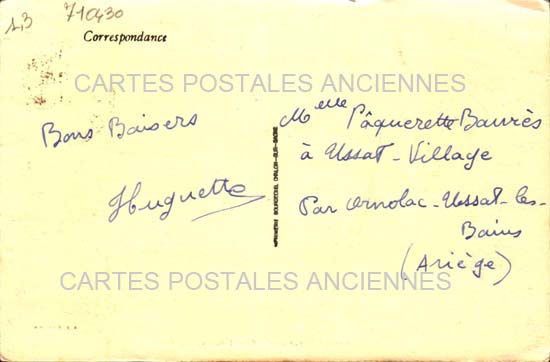 1,3 710430
Correspondance
CARTES POSTALES ANCIENNES
Bons Baisers
Huguette
IMPRIMERIE BOURGEOIS, CHALON-SUR-SAONE
Melle Pâquerette Baurès
à Ussat-Village
Par Ornolac-Ussat-les-
Bains
(Ariège)
CARTES POSTALES ANCIENNES